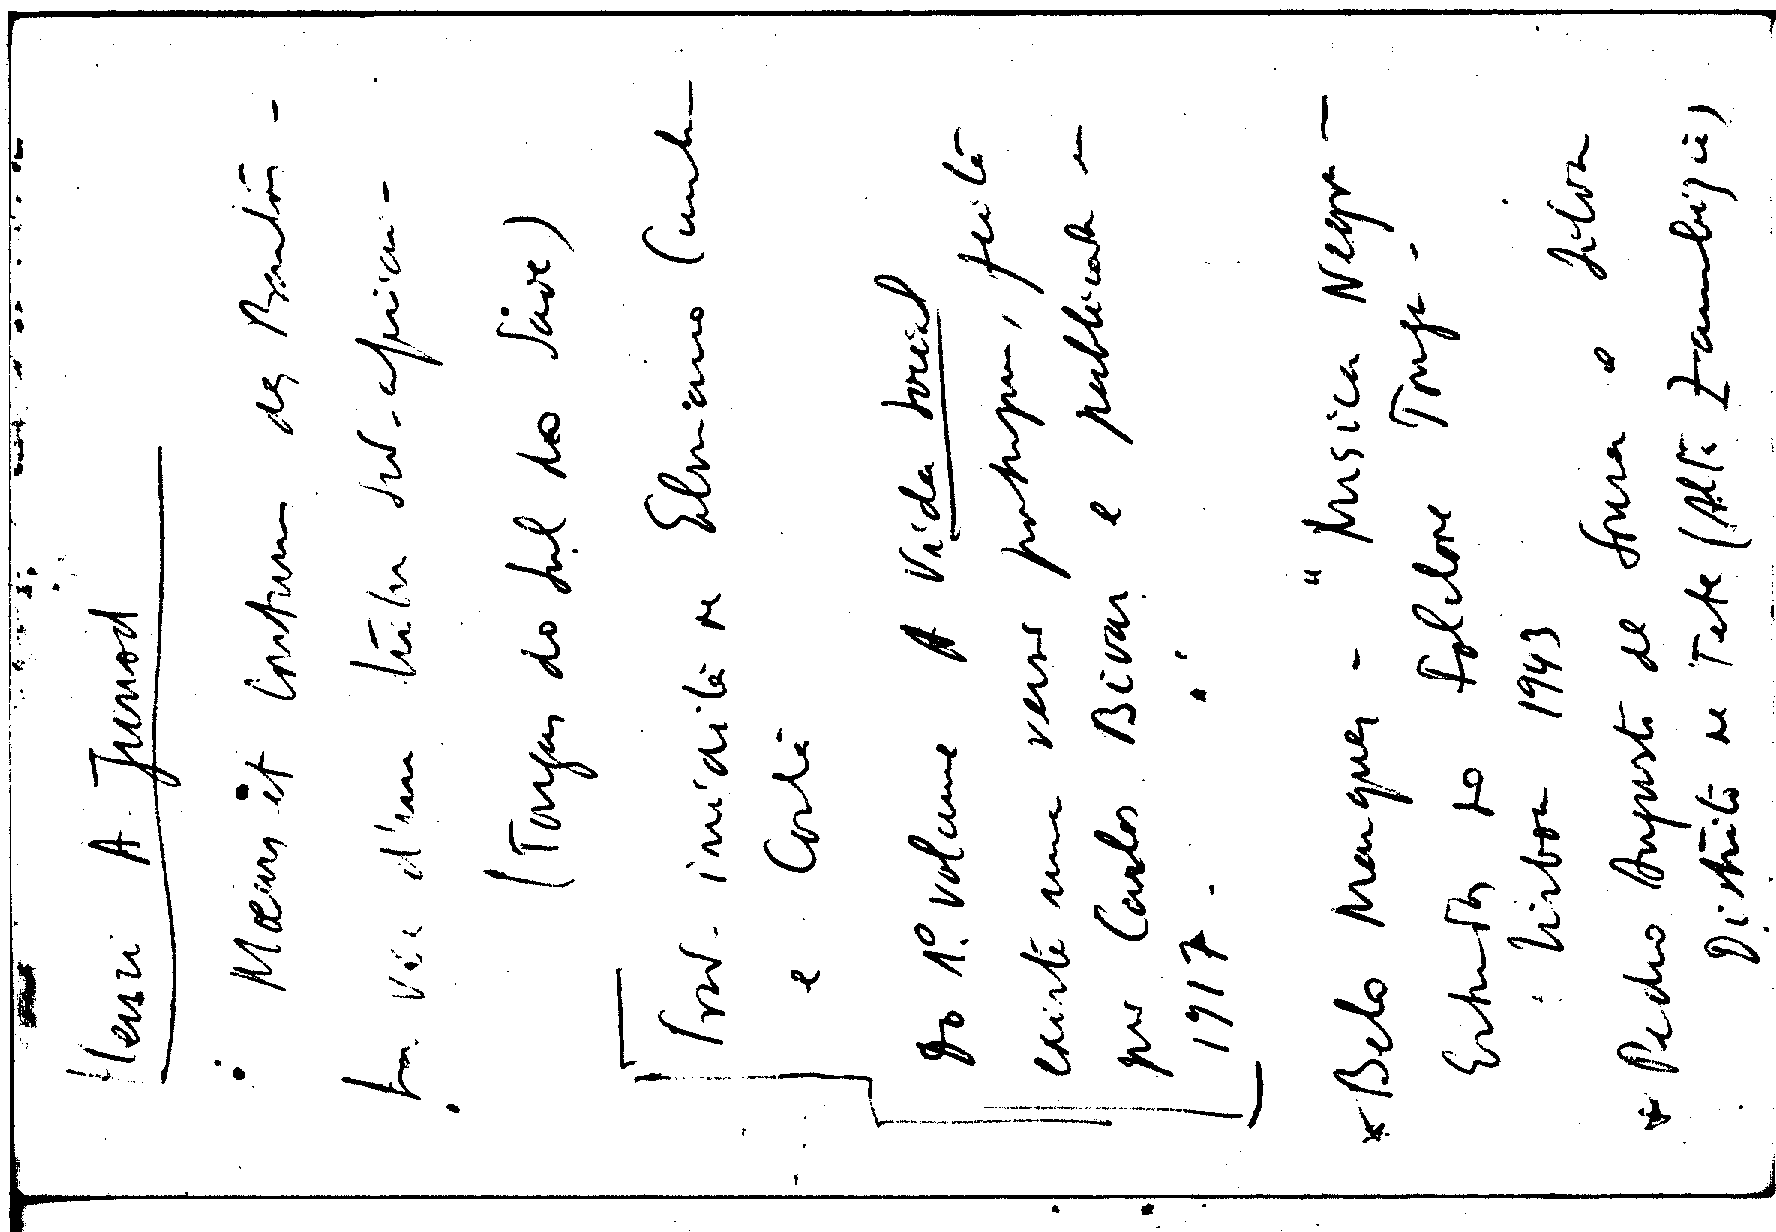 Henri A. Junod
Moeurs et Coutumes des Bantous -
La vie d'une tribu sud-africaine -
(Tongas do Sul do Save)
Trad. inédita de Elmiano Cunha
e Costa
Do 1º volume A Vida Social
existe uma versão portuguesa, feita
por Carlos Bivar e publicada em
1917.
* Belo Marques - "Musica Negra -
Estudos do folclore Tonga.
Lisboa 1943
* Pedro Augusto de Sousa e Silva
Distrito de Tete (Alta Zambezia)